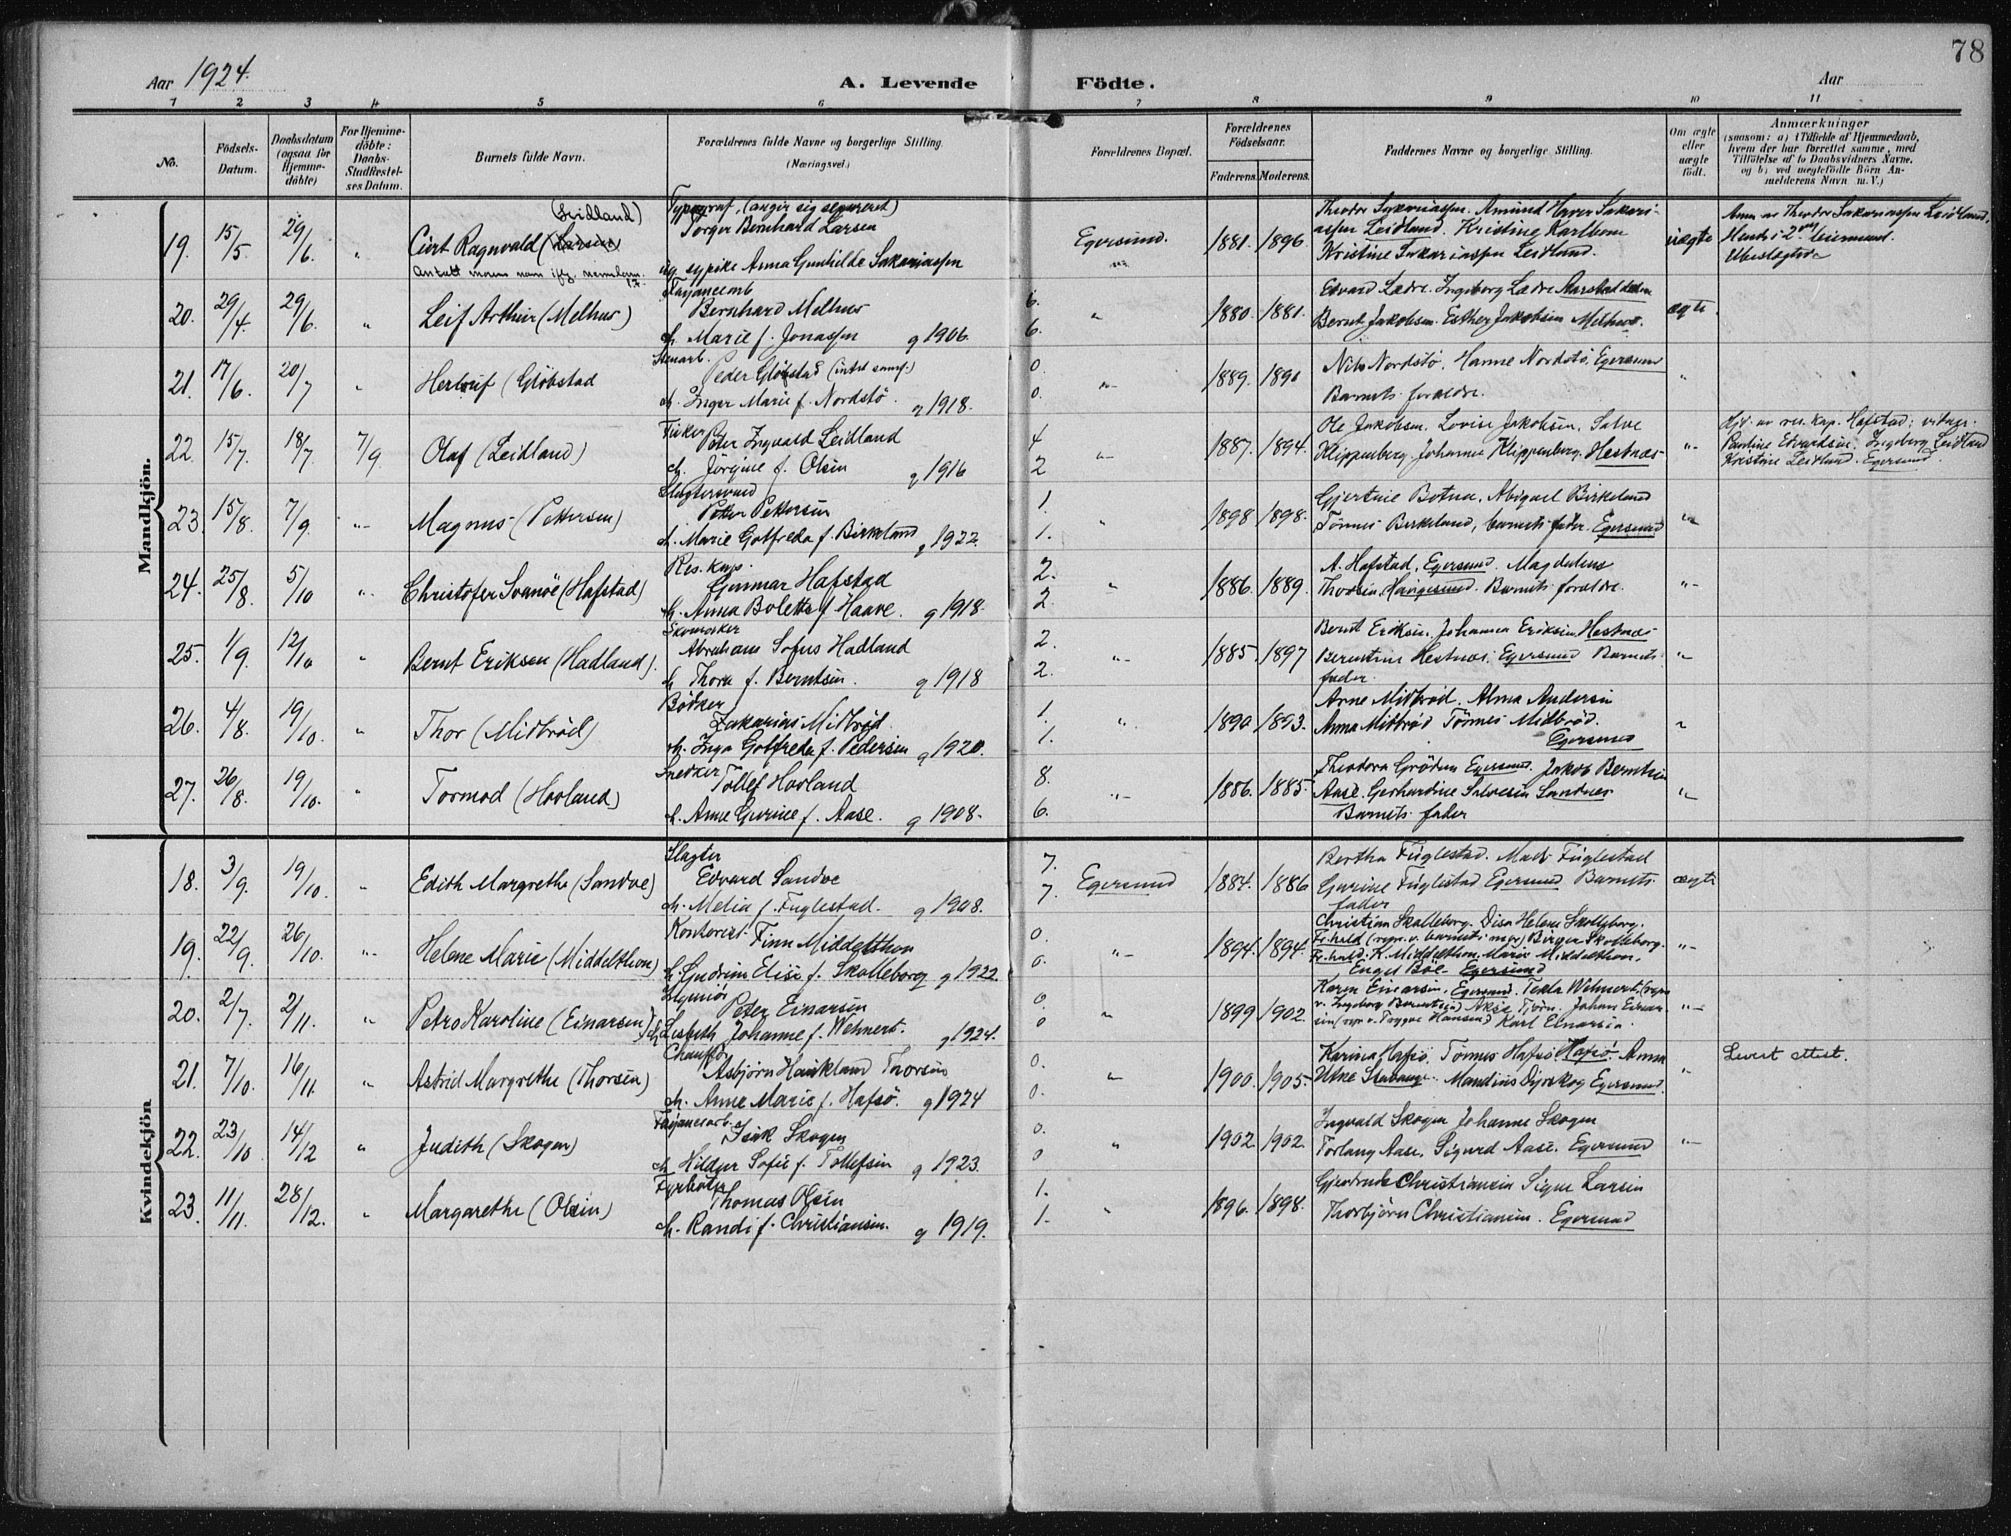 78
Aar 1924.
A. Levende Födte.
Aar
1 2 3 4 5 6 7 8 9 10 11
No.
Födsels-Datum.
Daabsdatum (ogsaa for Hjemme-döbte)
For Hjemme-döbte: Daabs-Stadfæstel-ses Datum.
Barnets fulde Navn.
Forældrenes fulde Navne og borgerlige Stilling. (Næringsvei.)
Forældrenes Bopæl.
Forældrenes Födselsaar.
Faderens. Moderens.
Faddernes Navne og borgerlige Stilling.
Om ægte eller uægte födt.
Anmærkninger
(saasom: a) i Tilfælde af Hjemmedaab,
hvem der har forrettet samme, med
Tilföielse af to Daabsvidners Navne.
og b) ved uægtefödte Börn An-
melderens Navn m. V.)
Mandkjön.
19. 15/5 29/6 "
(Leidland)
Curt Ragnvald (Larsen)
Typograf, (angir sig separeret)
Torger Bernhard Larsen
ug. s. pike Anna Gunhilde Sakariassen
Egersund. 1881. 1896.
Theodor Sakariassen. Amund Sakari-
assen Leidland. Kristine Karlsen
Kristine Sakariassen Leidland.
uægte
Anm. av Theodor Sakariassen Leidland.
20. 29/4. 29/6. " Leif Arthur (Melhus)
Fayancearb
Bernhard Melhus
h. Marie f. Jonassen g 1906.
6. 6. " 1880. 1881.
Edvard Lædre. Ingeborg Lædre
Bernt Jakobsen. Esther Jakobsen Melhus.
ægte
21. 17/6 20/7 " Herluf (Glöbstad
Stenarb.
Peder Glöbstad (intet samf.)
h. Inger Marie f. Nordstö. g 1918.
0. 0. "- 1889. 1890
Nils Nordstö, Hanne Nordstö, Egersund
Barnets foreldre.
"
22. 15/7. 18/7. 7/9. Olaf (Leidland)
Fisker
Peter Ingvald Leidland
h. Jörgine f. Olsen g 1916
4 2 "- 1887. 1894.
Ole Jakobsen. Lovise Jakobsen, Salve
Klippenberg, Johanne Klippenberg. Hestnæs
"-
Hjd. av res. kap. Hafstad: vitner:
Pauline Edvardsen. Ingeborg Leidland
Kristine Leidland. Egersund.
23. 15/8. 7/9. "- Magnus (Pettersen)
Slagtersvend
Peter Pettersen
h. Marie Gotfreda f. Birkeland g 1922.
1. 1. " 1898 1898.
Gjertine Botna, Abigael Birkeland
Tönnes Birkeland, barnets fader. Egersund
"-
24. 25/8. 5/10 "- Christofer Svanöe (Hafstad)
Res. kap.
Gunnar Hafstad
h. Anna Bolette f. Haave. g 1918.
2. 2. " 1886. 1889.
A. Hafstad, Egersund. Magdalene
Thorsen, Haugesund. Barnets foreldre.
"-
25. 1/9. 12/10 " Bernt Eriksen (Hadland).
Skomaker
Abraham Sofus Hadland
h. Thora f. Berntsen. g 1918
2. 2. "- 1885. 1897
Bernt Eriksen, Johanna Eriksen, Hestnæs
Berentine Hestnæs. Egersund Barnets
fader.
"
26. 4/8. 19/10. " Thor (Midbröd)
Bödker
Zakarias Midbröd
h. Inga Gotfreda f. Pedersen g 1920.
1. 1. " 1890 1893.
Arne Midbröd. Alma Andersen
Anna Midbröd Tönnes Midbröd.
Egersund
"
27. 26/8. 19/10. " Tormod (Hovland)
Snedker
Tollef Hovland
h. Anne Gurine f. Aase. g 1908.
8. 6. "- 1886. 1885.
Theodora Grödem Egersund. Jakob Berntsen
Aase. Gerhardine Salvesen Sandnes
Barnets fader
"
Kvindekjön
18. 3/9. 19/10. " Edith Margrethe (Sandve)
Slagter
Edvard Sandve
h. Melia f. Fuglestad. g 1908.
7. 7. Egersund 1884. 1886
Bertha Fuglestad. Mads Fuglestad
Gurine Fuglestad Egersund Barnets
fader
ægte
19. 22/9. 26/10. "- Helene Marie (Middelthon)
Kontorist
Finn Middelthon
h. Gudrun Elise f. Skolleborg g 1922.
0. 0. "- 1894. 1894.
Christian Skolleborg. Disa Helene Skolleborg.
Fr.hald (repr. v. barnets mor) Birger Skolleborg.
Fr.hald. K. Middelthon. Marie Middelthon.
Engel Böe. Egersund
"-
20. 2/7. 2/11. " Petra Karoline (Einarsen)
Ingeniör
Peter Einarsen
h. Lisbeth Johanne f. Wehnert. g 1924.
0. 0 " 1899 1902.
Karen Einarsen, Egersund. Tekla Wehnert (repr.
v. Ingeborg Berentsen) Aksel Tjörn Johan Einar-
sen (repr. v. Trygve Hansen) Karl Einarsen.
"-
21. 7/10. 16/11. " Astrid Margrethe (Thorsen)
Chaufför
Asbjörn Haukland Thorsen
h. Anne Marie f. Hafsö. g 1924
0. 0. " 1900. 1905.
Karina Hafsö, Tönnes Hafsö. Hafsö. Anna
Utne Stavanger. Mandius Dyrskog Egersund.
"
Levert attest.
22. 23/10 14/12 " Judith (Skogen)
Fayancearb.
Isak Skogen
h. Hildur Sofie f. Tollefsen g 1923.
0. 0 " 1902. 1902.
Ingvald Skogen Johanne Skogen
Torlaug Aase. Sigurd Aase. Egersund
"-
23. 11/11. 28/12. " Margarethe (Olsen)
Fyrböter
Thomas Olsen
h. Randi f. Christiansen. g 1919.
1. 1. " 1896. 1898.
Gjertrude Christiansen Signe Larsen
Thorbjörn Christiansen. Egersund